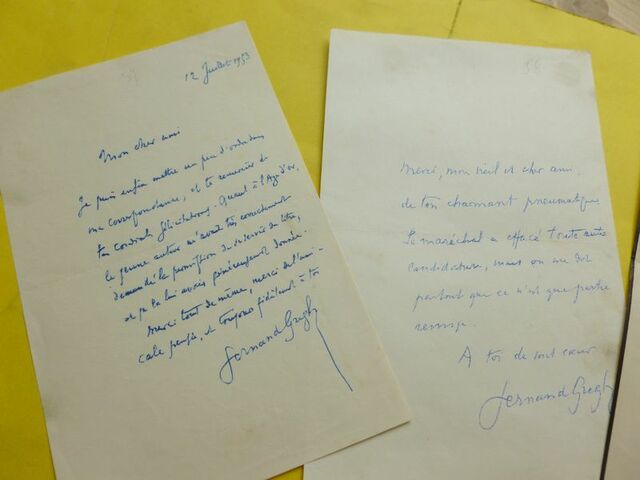 12 Juillet 1953
Mon cher ami
Je puis enfin mettre un peu d'ordre dans
ma correspondance, et te remercier de
tes cordiales félicitations. Quant à l'Age d'or,
le jeune auteur m'avait très correctement
demandé la permission de se servir du titre,
et je la lui avais généreusement donnée.
Merci tout de même, merci de l'ami-
cale pensée, et toujours fidèlement à toi
Fernand Gregh
Merci, mon vieil et cher ami,
de ton charmant pneumatique
Le maréchal a effacé toute autre
candidature, mais on me dit
partout que ce n'est que partie
remise.
A toi de tout cœur
Fernand Gregh